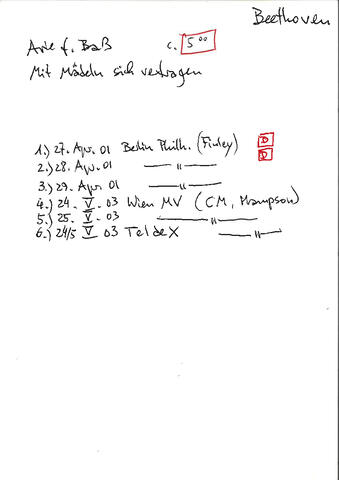 Beethoven
Arie f. Baß c. 5 00
Mit Mädeln sich vertragen
1.) 27. Apr. 01 Berlin Philh. (Finley) D
2.) 28. Apr. 01 —— " —— D
3.) 29. Apr 01 —— " ——
4.) 24. V. 03 Wien MV (CM, Hampson)
5.) 25. V. 03 —— " ——
6.) 24/5 V 03 Teldex —— " ——